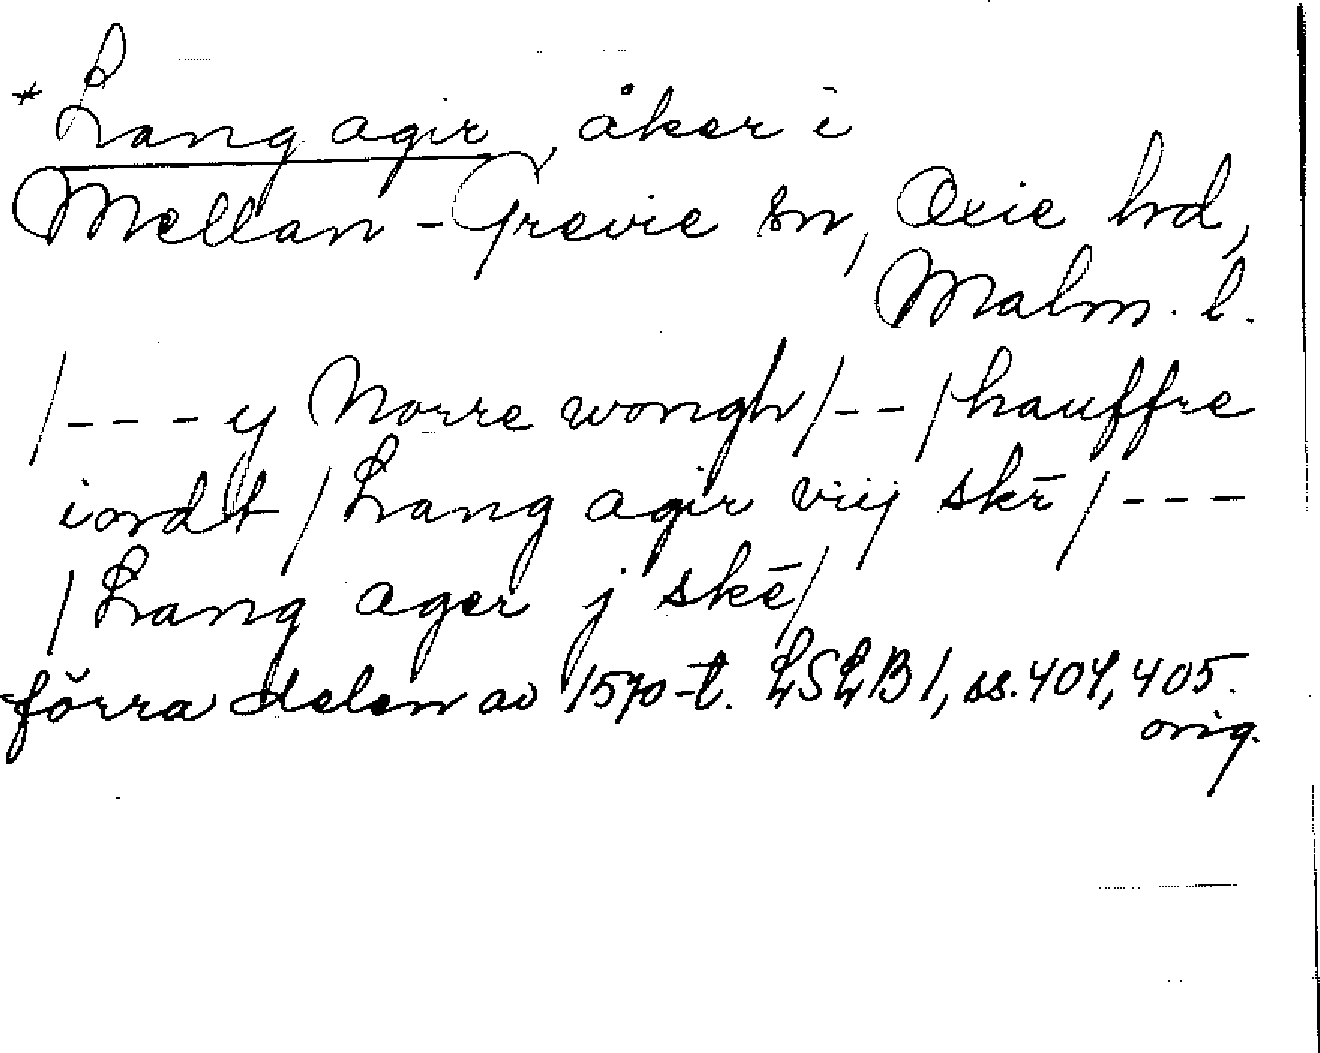 *Lang agir, åker i
Mellan-Grevie sn, Oxie hd,
Malm. l.
/--- y Norre wongh/--/hauffre
iordt/Lang agir viij skē/---
/Lang ager j skē/
förra delen av 1570-t. LSLB 1, ss. 404, 405.
orig.